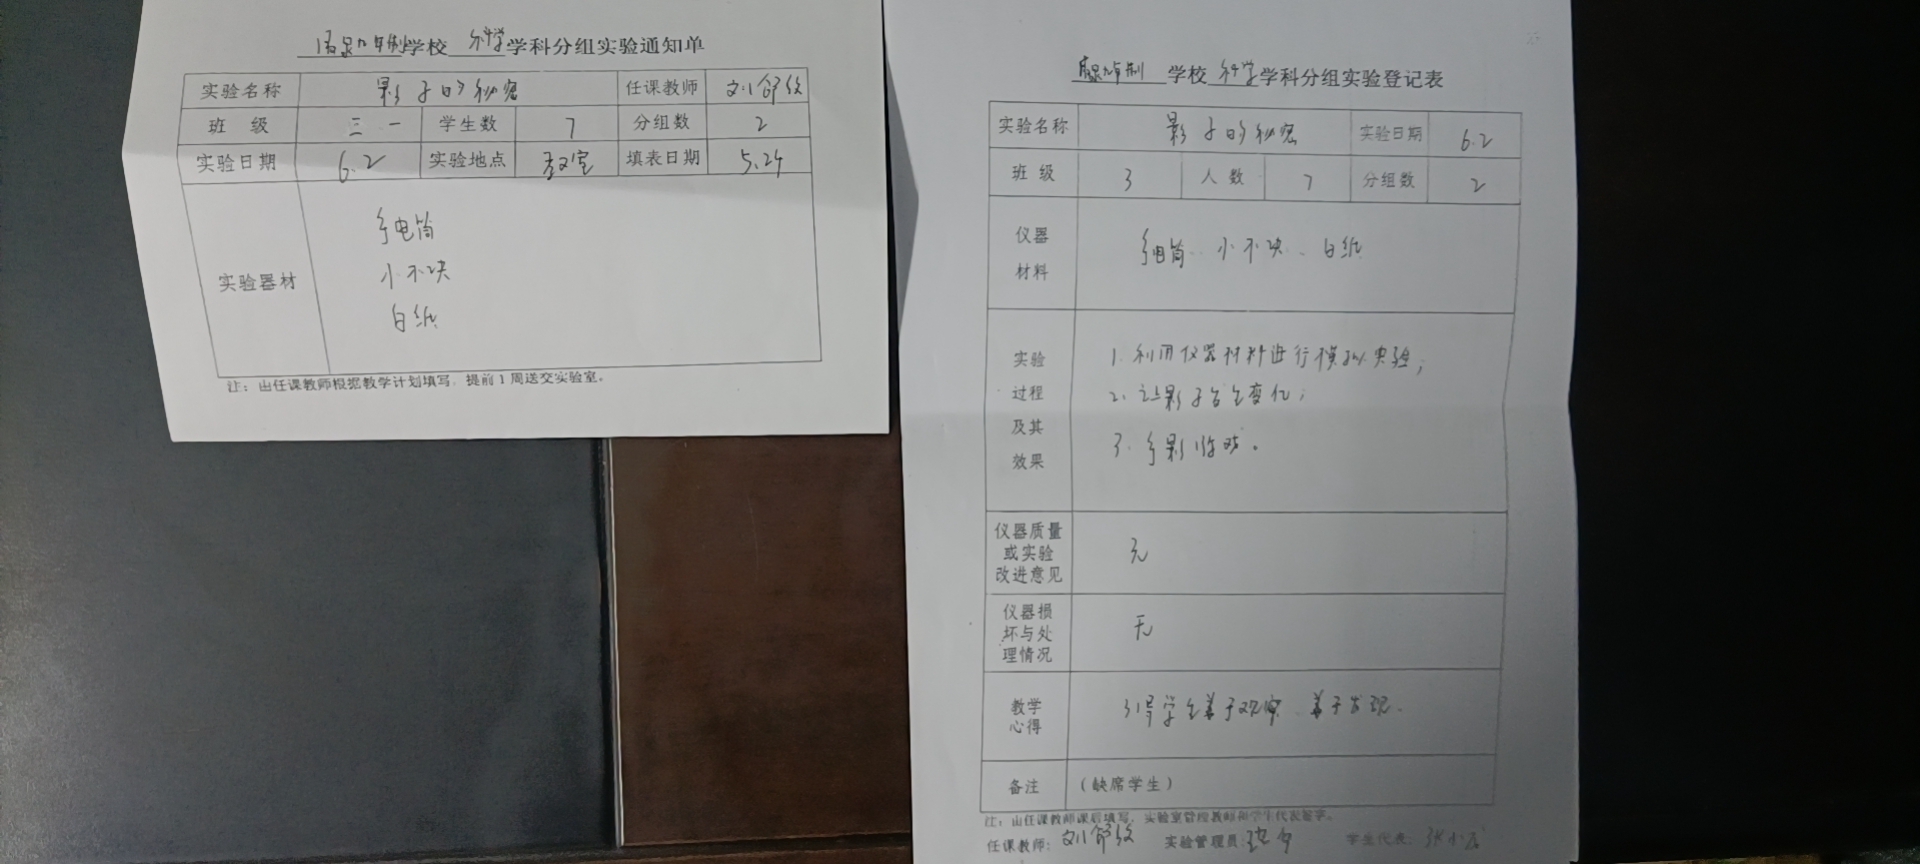 九年制学校 科学 学科分组实验通知单
实验名称 影子的秘密 任课教师 刘
班 级 三一 学生数 7 分组数 2
实验日期 6.2 实验地点 教室 填表日期 5.24
实验器材
手电筒
小木块
白纸
注：由任课教师根据教学计划填写，提前1周送交实验室。
九年制 学校 科学 学科分组实验登记表
实验名称 影子的秘密 实验日期 6.2
班 级 3 人 数 7 分组数 2
仪器
材料
手电筒、小木块、白纸
实验
过程
及其
效果
1. 利用仪器材料进行模拟实验；
2. 让影子发生变化；
3. 手影游戏。
仪器质量
或实验
改进意见
无
仪器损
坏与处
理情况
无
教学
心得
引导学生善于观察、善于发现.
备注 (缺席学生)
注：由任课教师课后填写，实验室管理教师和学生代表签字。
任课教师：刘 实验管理员： 学生代表：张小